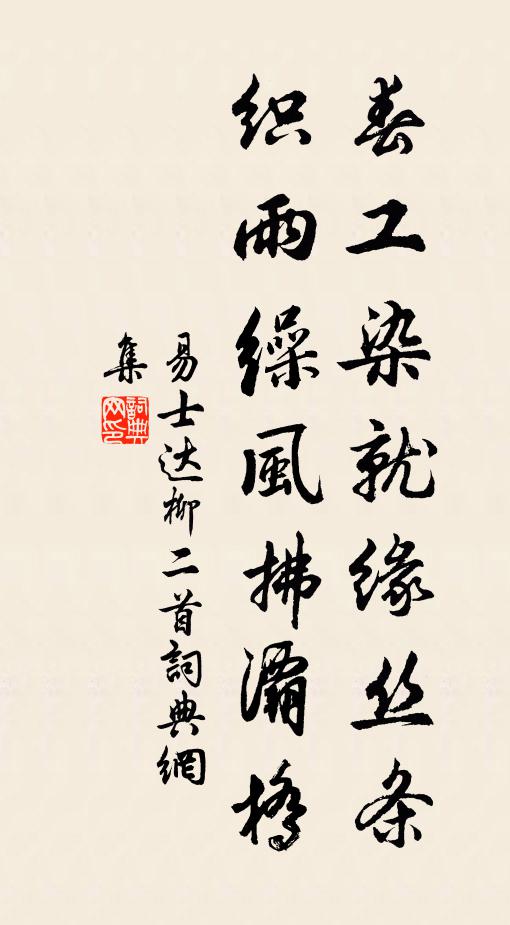 春工染就缘丝条
织雨缲風拂灞橋
易士达柳二首詞典網
集
詞典网印